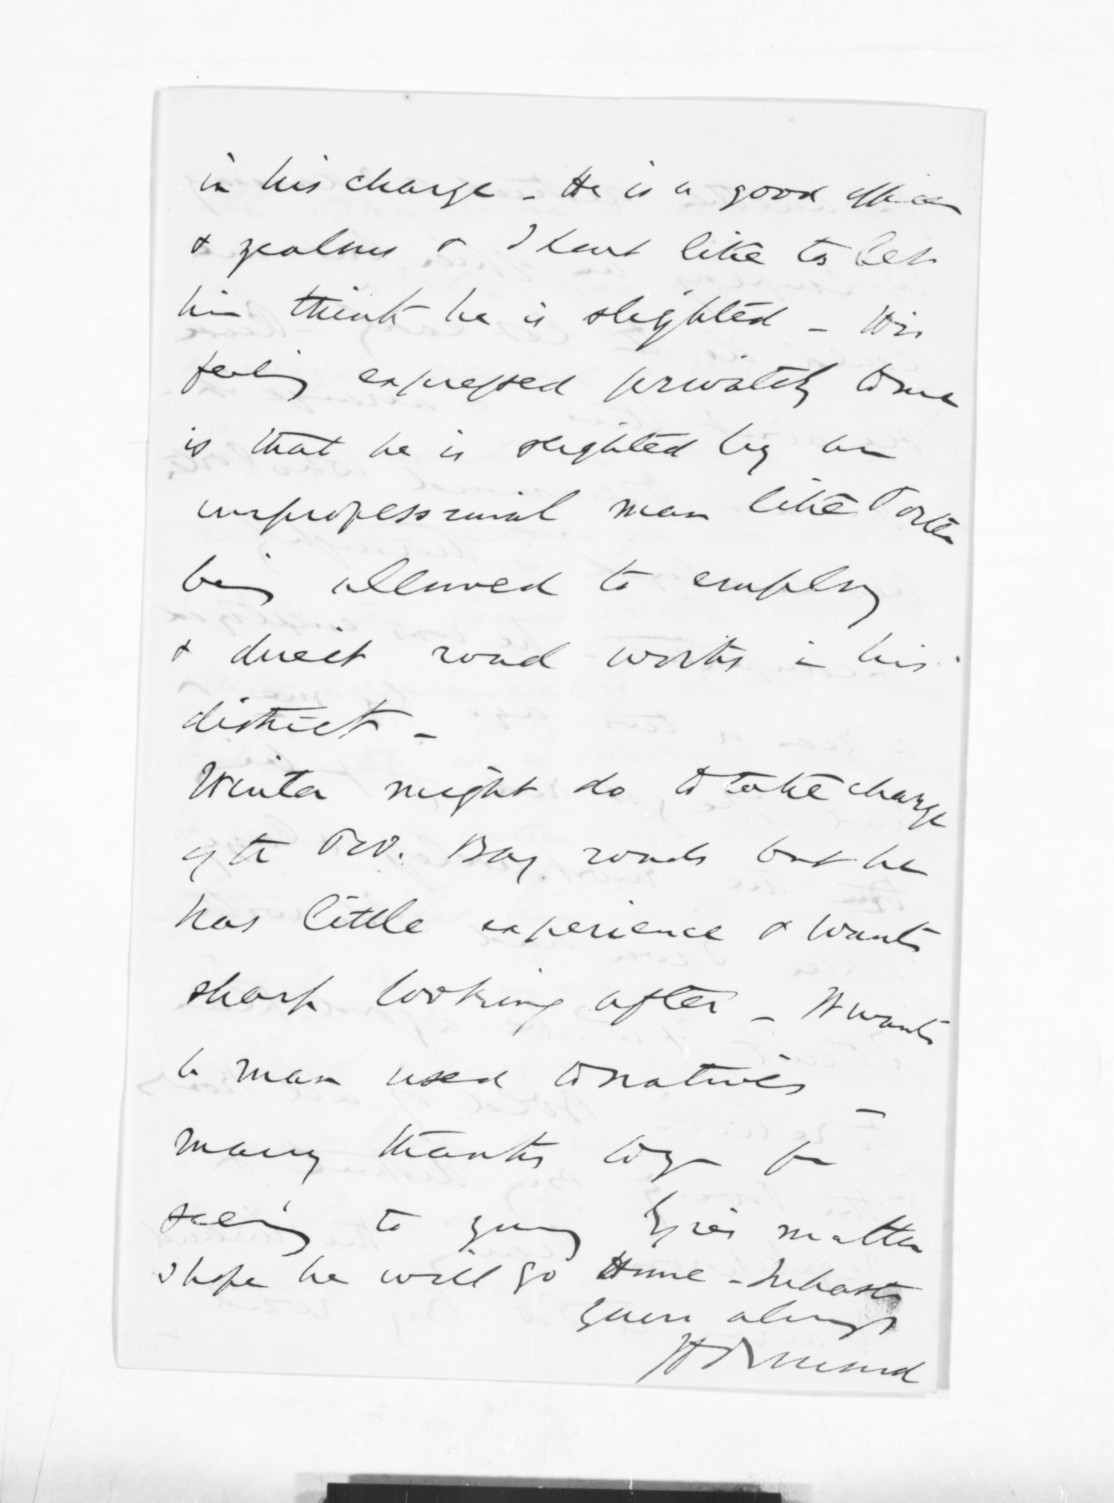 in his charge - He is a good officer
& zealous & I dont like to let
him think he is slighted - His
feeling expressed privately to me
is that he is slighted by an
unprofessional man like Porter
being allowed to employ
& direct road works in his
district -
Winter might do to take charge
of the Pov. Bay roads but he
has little experience & wants
sharp looking after - It wants
a man used to natives -
many thanks to you for
seeing to young matter
I hope he will go Home - In haste
yours always